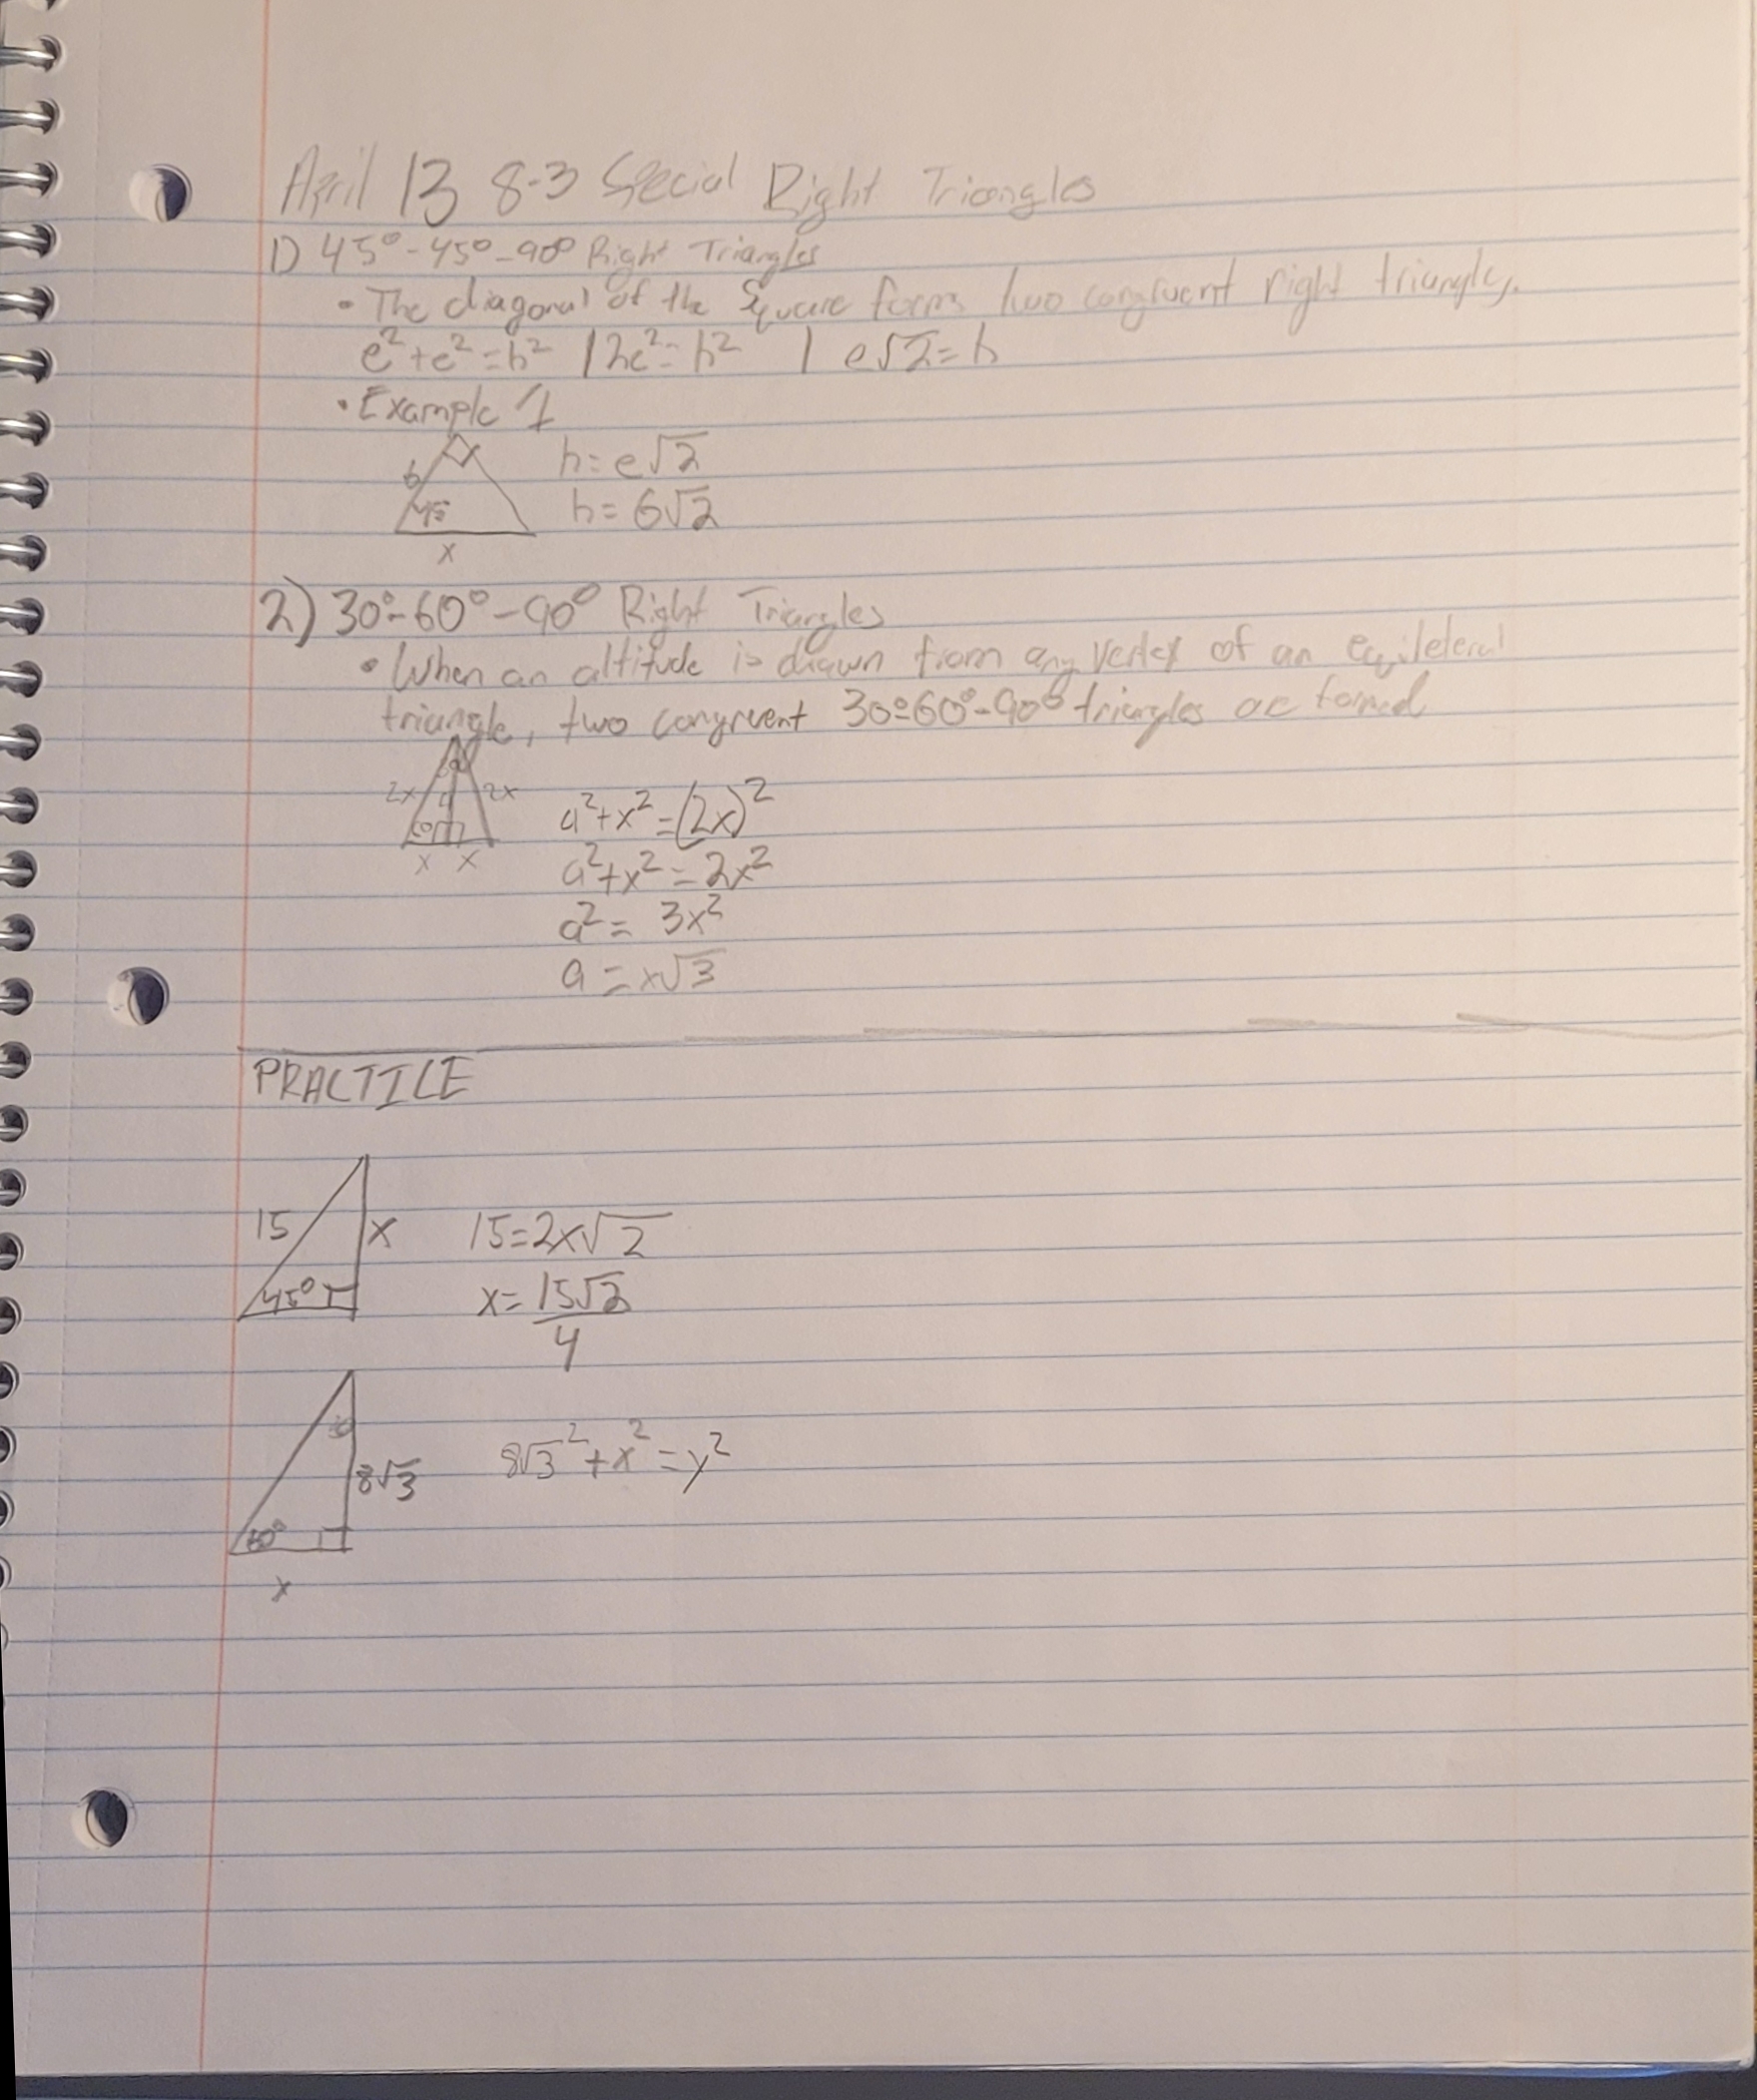 April 13 8-3 Special Right Triangles
1) 45°-45°-90° Right Triangles
• The diagonal of the Square forms two congruent right triangles.
e²+e²=h² | 2e²=h² | e√2=h
• Example 1
6 h=e√2
45 h=6√2
x
2) 30°-60°-90° Right Triangles
• When an altitude is drawn from any vertex of an equileteral
triangle, two congruent 30°-60°-90° triangles are formed
2x a 2x a²+x²=(2x)²
x x a²+x²=2x²
a²=3x²
a=x√3
PRACTICE
15 x 15=2x√2
45° x=15√2/4
8√3 8√3²+x²=y²
60°
x